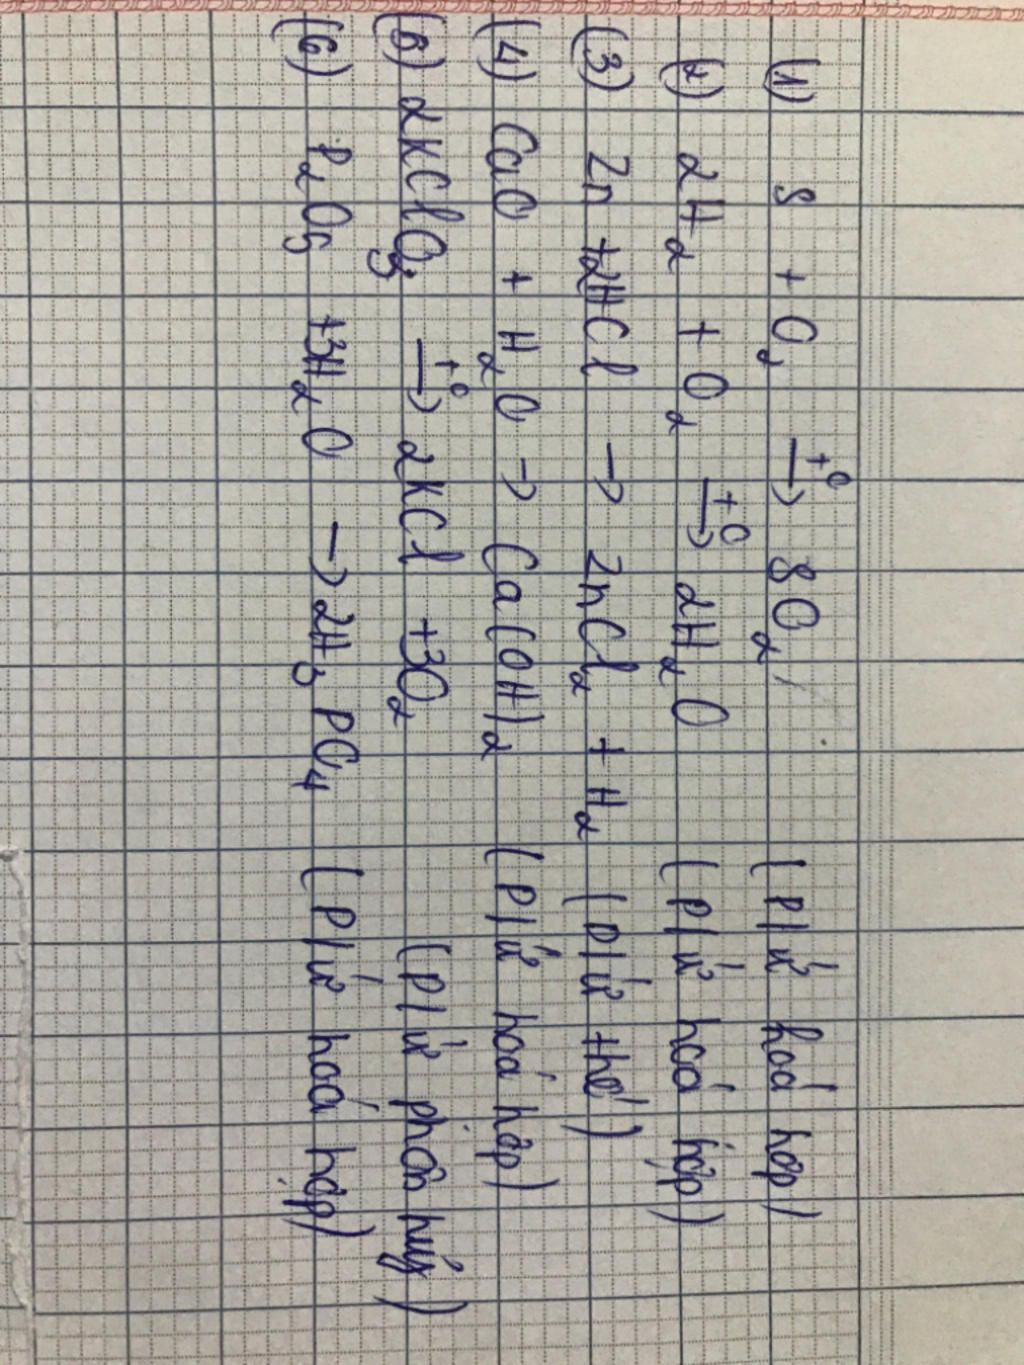 (1) S + O₂ —t°→ SO₂ (P/ứ hoá hợp)
(2) 2H₂ + O₂ —t°→ 2H₂O (P/ứ hoá hợp)
(3) Zn + 2HCl → ZnCl₂ + H₂ (P/ứ thế)
(4) CaO + H₂O → Ca(OH)₂ (P/ứ hoá hợp)
(5) 2KClO₃ —t°→ 2KCl + 3O₂ (P/ứ phân huỷ)
(6) P₂O₅ + 3H₂O → 2H₃PO₄ (P/ứ hoá hợp)